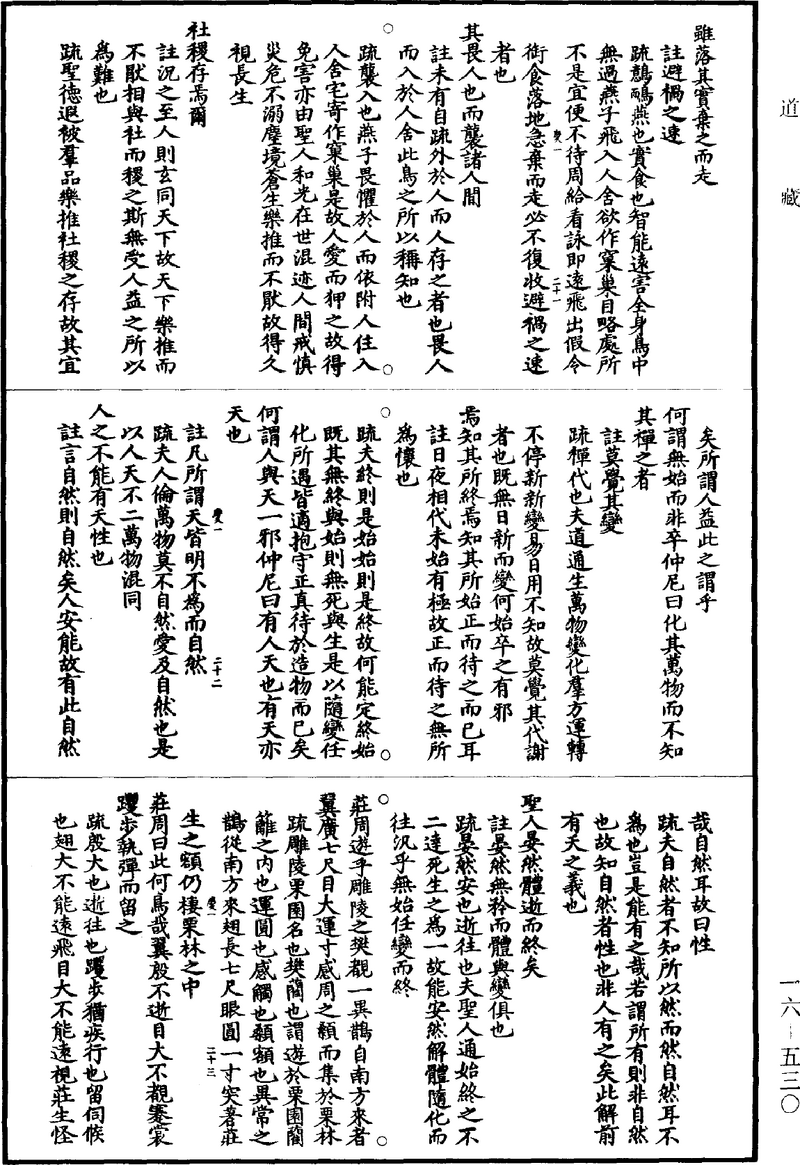 道藏
雖落其實棄之而走
註避禍之速
疏鷾鴯燕也實食也智能遠害全身鳥中
無過燕子飛入人舍欲作窠巢目略處所
不是宜便不待周給看詠即遠飛出假令
銜食落地急棄而走必不復收避禍之速
者也
其畏人也而襲諸人間
註未有自疏外於人而人存之者也畏人
而入於人舍此鳥之所以稱知也
疏襲入也燕子畏懼於人而依附人住入
人舍宅寄作窠巢是故人愛而狎之故得
免害亦由聖人和光在世混迹人間戒慎
災危不溺塵境蒼生樂推而不猒故得久
視長生
社稷存焉爾
註況之至人則玄同天下故天下樂推而
不猒相與社而稷之斯無受人益之所以
為難也
疏聖德遐被羣品樂推社稷之存故其宜
矣所謂人益此之謂乎
何謂無始而非卒仲尼曰化其萬物而不知
其禪之者
註莫覺其變
疏禪代也夫道通生萬物變化羣方運轉
不停新新變易日用不知故莫覺其代謝
者也既無日新而變何始卒之有邪
焉知其所終焉知其所始正而待之而已耳
註日夜相代未始有極故正而待之無所
為懷也
疏夫終則是始始則是終故何能定終始
既其無終與始則無死與生是以隨變任
化所遇皆適抱守正真待於造物而已矣
何謂人與天一邪仲尼曰有人天也有天亦
天也
註凡所謂天皆明不為而自然
疏夫人倫萬物莫不自然愛及自然也是
以人天不二萬物混同
人之不能有天性也
註言自然則自然矣人安能故有此自然
哉自然耳故曰性
疏夫自然者不知所以然而然自然耳不
為也豈是能有之哉若謂所有則非自然
也故知自然者性也非人有之矣此解前
有天之義也
聖人晏然體逝而終矣
註晏然無矜而體與變俱也
疏晏然安也逝往也夫聖人通始終之不
二達死生之為一故能安然解體隨化而
往汎乎無始任變而終
莊周遊乎雕陵之樊覩一異鵲自南方來者
翼廣七尺目大運寸感周之顙而集於栗林
疏雕陵栗園名也樊藺也謂遊於栗園藺
籬之內也運圓也感觸也顙額也異常之
鵲從南方來翅長七尺眼圓一寸突著莊
生之額仍棲栗林之中
莊周曰此何鳥哉翼殷不逝目大不覩蹇裳
躩步執彈而留之
疏殷大也逝往也躩步猶疾行也留伺候
也翅大不能遠飛目大不能遠視莊生怪
變一
二十一
變一
二十二
變一
二十三
一六-五三〇